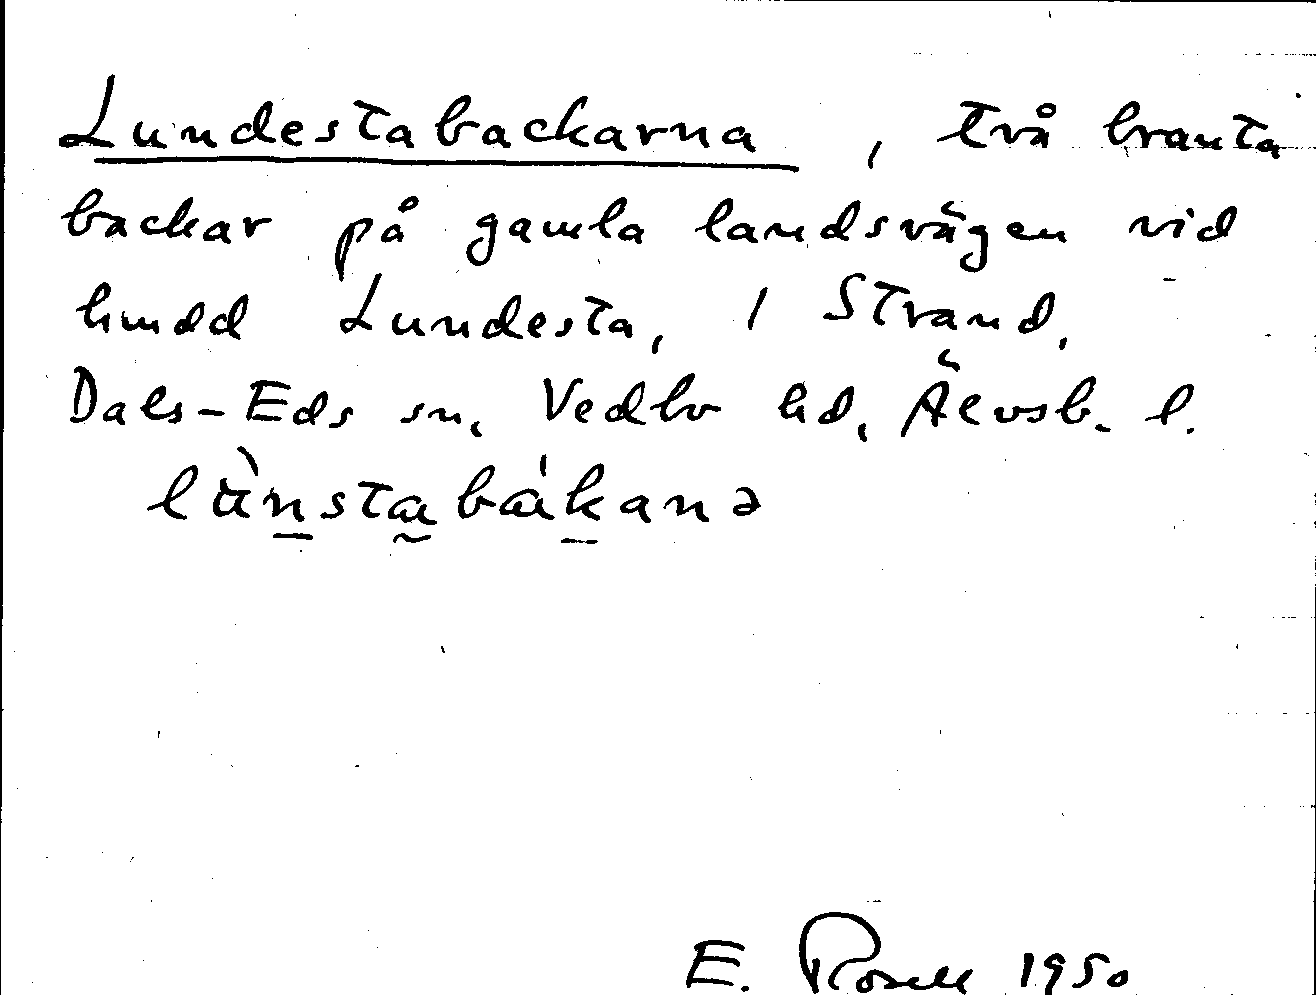 Lundestabackarna, två branta
backar på gamla landsvägen vid
hmdd Lundesta, 1 Strand,
Dals-Eds sn, Vedbo hd, Älvsb. l.
lùnstabákanə
E. Rosell 1950